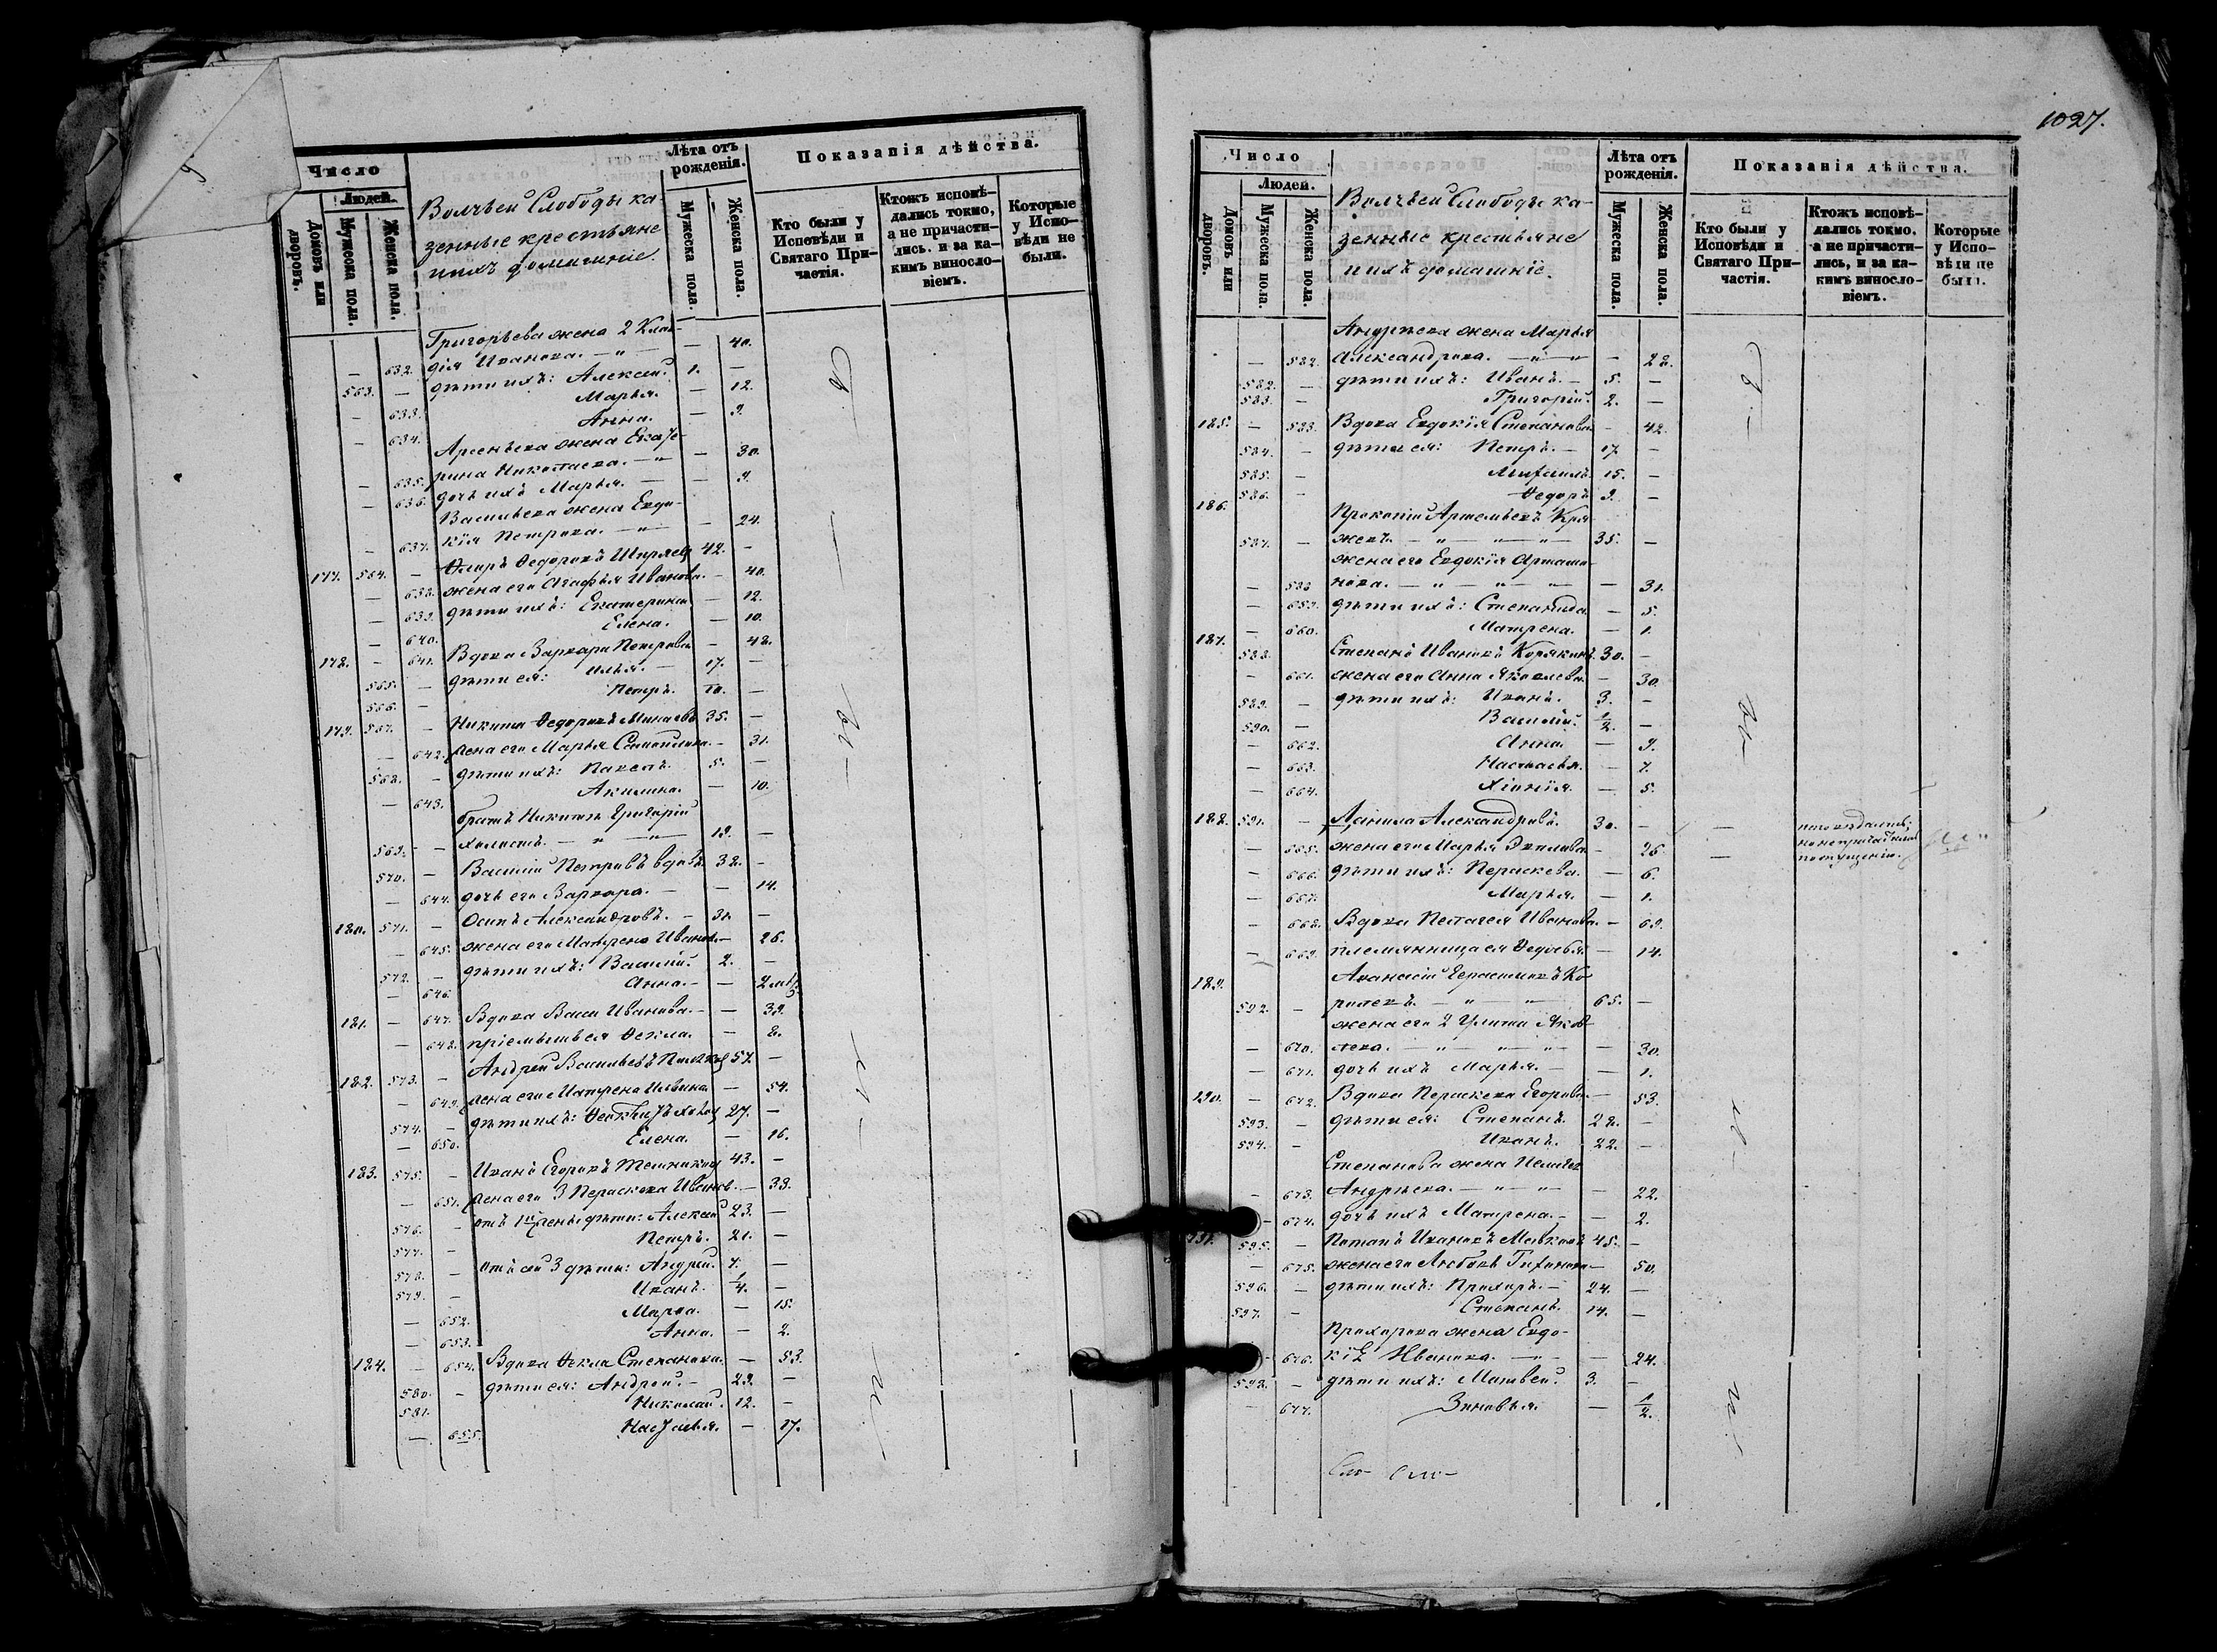 Число
Людей.
Домовъ или дворовъ.
Мужеска пола.
Женска пола.
Волчьей Слободы ка-
зенные крестьяне
и ихъ домашніе.
Лѣта отъ рожденія.
Мужеска пола.
Женска пола.
Показанія дѣйства.
Кто были у Исповѣди и Святаго При-частія.
Ктожъ исповѣ-дались токмо, а не причасти-лись. и за ка-кимъ виносло-віемъ.
Которые у Испо-вѣди не были.
Григорьева жена 2 Клав-
— 632. дія Иванова. — „ — — 40.
563. — дѣти ихъ: Алексѣй. 1. —
— 633. Марья. — 12.
— 634. Анна. — 9.
Арсеньева жена Екате-
— 635. рина Николаева. — „ — 30.
— 636. дочь ихъ Марья. — — 9.
Васильева жена Евдо-
— 637. кія Петрова. — „ — — 24.
177. 564. — Ѳедоровъ Ширяевъ 42. —
— 638. жена его Агафья Иванова. — 40.
— 639. дѣти ихъ: Екатерина — 12.
— 640. Елена. — 10.
178. — 641. Вдова Варвара Петрова — 48.
565. — дѣти ея: Илья. — 17. —
566. — Петръ. 10. —
179. 567. — Никита Ѳедоровъ Минаевъ 35. —
— 642. жена его Марья — 31.
568. — дѣти ихъ: Павелъ. 5. —
— 643. Акилина. — 10.
братъ Никиты Григорій
569. — холостъ. — „ — „ — 19. —
570. — Василій Петровъ вдовъ. 38. —
— 644. дочь его Варвара. — — 14.
180. 571. — Осипъ Александровъ. — 31. —
— 645. жена его Матрена Иванова — 26.
572. — дѣти ихъ: Василій. 2. —
— 646. Анна. — —
181. — 647. Вдова Васса Иванова. — — 39.
— 648. пріемышъ ея Ѳекла. — 8.
182. 573. — Андрей Васильевъ 57. —
— 649. жена его Матрена Ильина. — 54.
574. — дѣти ихъ: 27. —
— 650. Елена. — 16.
183. 575. — Иванъ Егоровъ 43. —
— 651. жена его 3 Параскева Иванов. — 33.
576. — отъ 1й жены дѣти: Алексѣй 23. —
577. — Петръ. 21. —
578. — отъ сей 3 дѣти: Андрей. 7. —
579. — Иванъ. 1/4. —
— 652. Марѳа. — 15.
— 653. Анна. — 2.
184. — 654. Вдова Ѳекла Степанова. — 53.
580. — дѣти ея: Андрей. — 29. —
581. — Николай. 12. —
— 655. Настасья. — 17.
1027.
Число
Людей.
Домовъ или дворовъ.
Мужеска пола.
Женска пола.
Волчьей Слободы ка-
зенные крестьяне
и ихъ домашніе.
Лѣта отъ рожденія.
Мужеска пола.
Женска пола.
Показанія дѣйства.
Кто были у Исповѣди и Святаго При-частія.
Ктожъ исповѣ-дались токмо, а не причасти-лись, и за ка-кимъ виносло-віемъ.
Которые у Испо-вѣди не были.
Андреева жена Марья
— 582. Александрова. — „ — „ — 22.
582. — дѣти ихъ: Иванъ. — 5. —
583. — Григорій. 2. —
185. — 583. Вдова Евдокія Степанова — 42.
584. — дѣти ея: Петръ. — 17 —
585. — Михаилъ. 15. —
586. — Ѳедоръ 9. —
186. Прокопій Артемьевъ Кря-
587. — жевъ. — „ — „ — „ — 35. —
жена его Евдокія Артамо-
— 583 нова. — „ — „ — „ — — 31.
— 659. дѣти ихъ: Степанида — 5.
— 660. Матрена. — 1.
187. 588. Степанъ Ивановъ Корякинъ. 30. —
— 661. жена его Анна Яковлева — 30.
589. — дѣти ихъ: Иванъ. 3. —
590. — Василій. 1/2. —
— 662. Анна. — 9.
— 663. Настасья. — 7.
— 664. Хіонія. — 5.
188. 591. — Данила Александровъ. 30. — —
— 665. жена его Марья — 26. —
исповѣдались,
но не пріобщались
по опущенію.
— 666. дѣти ихъ: Параскева. — 6.
— 667. Марья. — 1.
— 668. Вдова Пелагея Иванова. — 69.
— 669. племянница ея Ѳедосья — 14.
189. Аѳанасій Герасимовъ Ко-
592. — ролевъ. — „ — „ — 65. —
жена его 2 Улита Яков-
— 670. лева. — „ — „ — „ — — 30.
— 671. дочь ихъ Марья. — — 1.
190. — 672. Вдова Параскева Егорова. — 53.
593. — дѣти ея: Степанъ. 28. —
594. — Иванъ. 22. —
Степанова жена Пелагея
— 673. Андреева. — „ — „ — — 22.
— 674. дочь ихъ Матрена. — — 2.
191. 595. — Потапъ Ивановъ 45. —
— 675. жена его Любовь Тихонова — 50.
596. — дѣти ихъ: Прохоръ. — 24. —
597. — Степанъ. 14. —
Прохорова жена Евдо-
— 676. кія Иванова. — „ — — 24.
598. — дѣти ихъ: Матвей. 3. —
— 677. Зиновья. — 1/2.